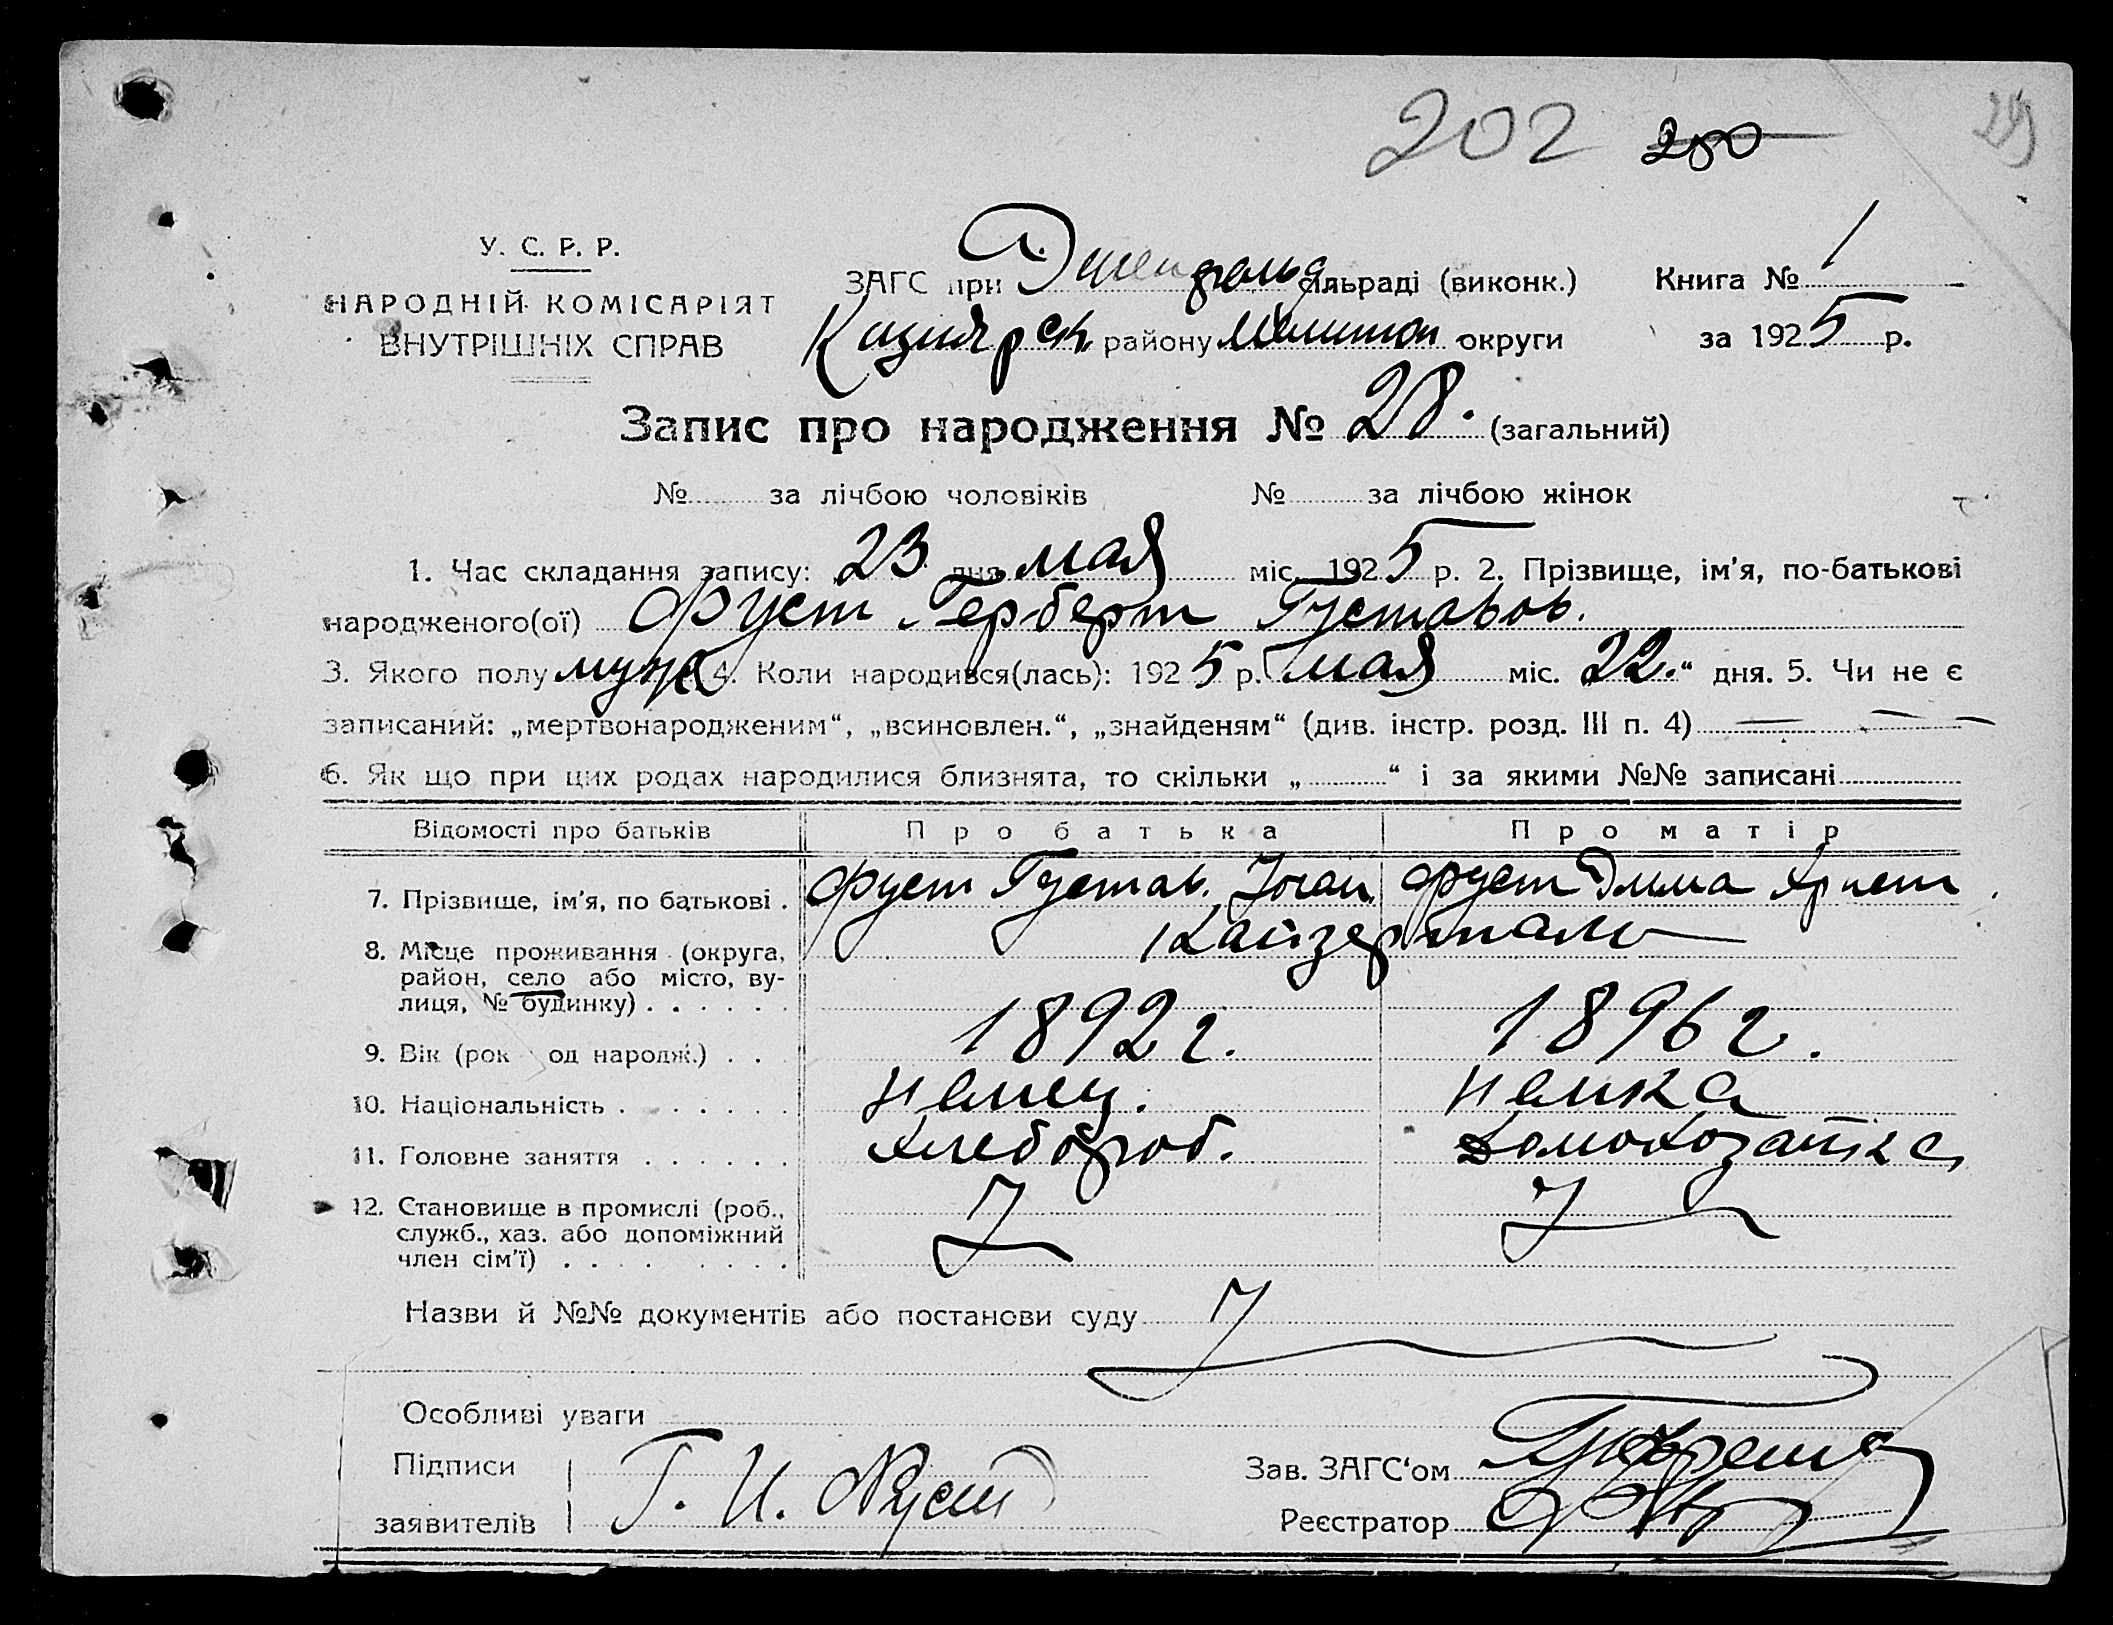 202 200 29
У. С. Р. Р.
НАРОДНІЙ КОМІСАРІЯТ
ВНУТРІШНІХ СПРАВ
ЗАГС при сільраді (виконк.) Книга № 1
району Мелитоп округи за 1925 р.
Запис про народження № 28. (загальний)
№ за лічбою чоловіків № за лічбою жінок
1. Час складання запису: 23 дня мая міс. 1925 р. 2. Прізвище, ім'я, по-батькові
народженого(ої) Фуст Герберт Густавов.
3. Якого полу муж 4. Коли народився(лась): 1925 р. мая міс. 22." дня. 5. Чи не є
записаний: „мертвонародженим“, „всиновлен.“, „знайденям“ (див. інстр. розд. III п. 4)
6. Як що при цих родах народилися близнята, то скільки „ “ і за якими №№ записані
Відомості про батьків Про батька Про матір
7. Прізвище, ім'я, по батькові . Фуст Густав. Иоган. Фуст Эмма Христ
8. Місце проживання (округа, Кайзерталь
район, село або місто, ву-
лиця, № будинку) . . . . . .
9. Вік (рок од народж.) . . 1892 г. 1896 г.
10. Національність . . . . . . . немец. немка
11. Головне заняття . . . . . . хлебороб. домохозайка
12. Становище в промислі (роб.,
служб., хаз. або допоміжний
член сім'ї) . . . . . . . .
Назви й №№ документів або постанови суду
Особливі уваги
Підписи Г. И. Фуст Зав. ЗАГС‘ом
заявителів Реєстратор